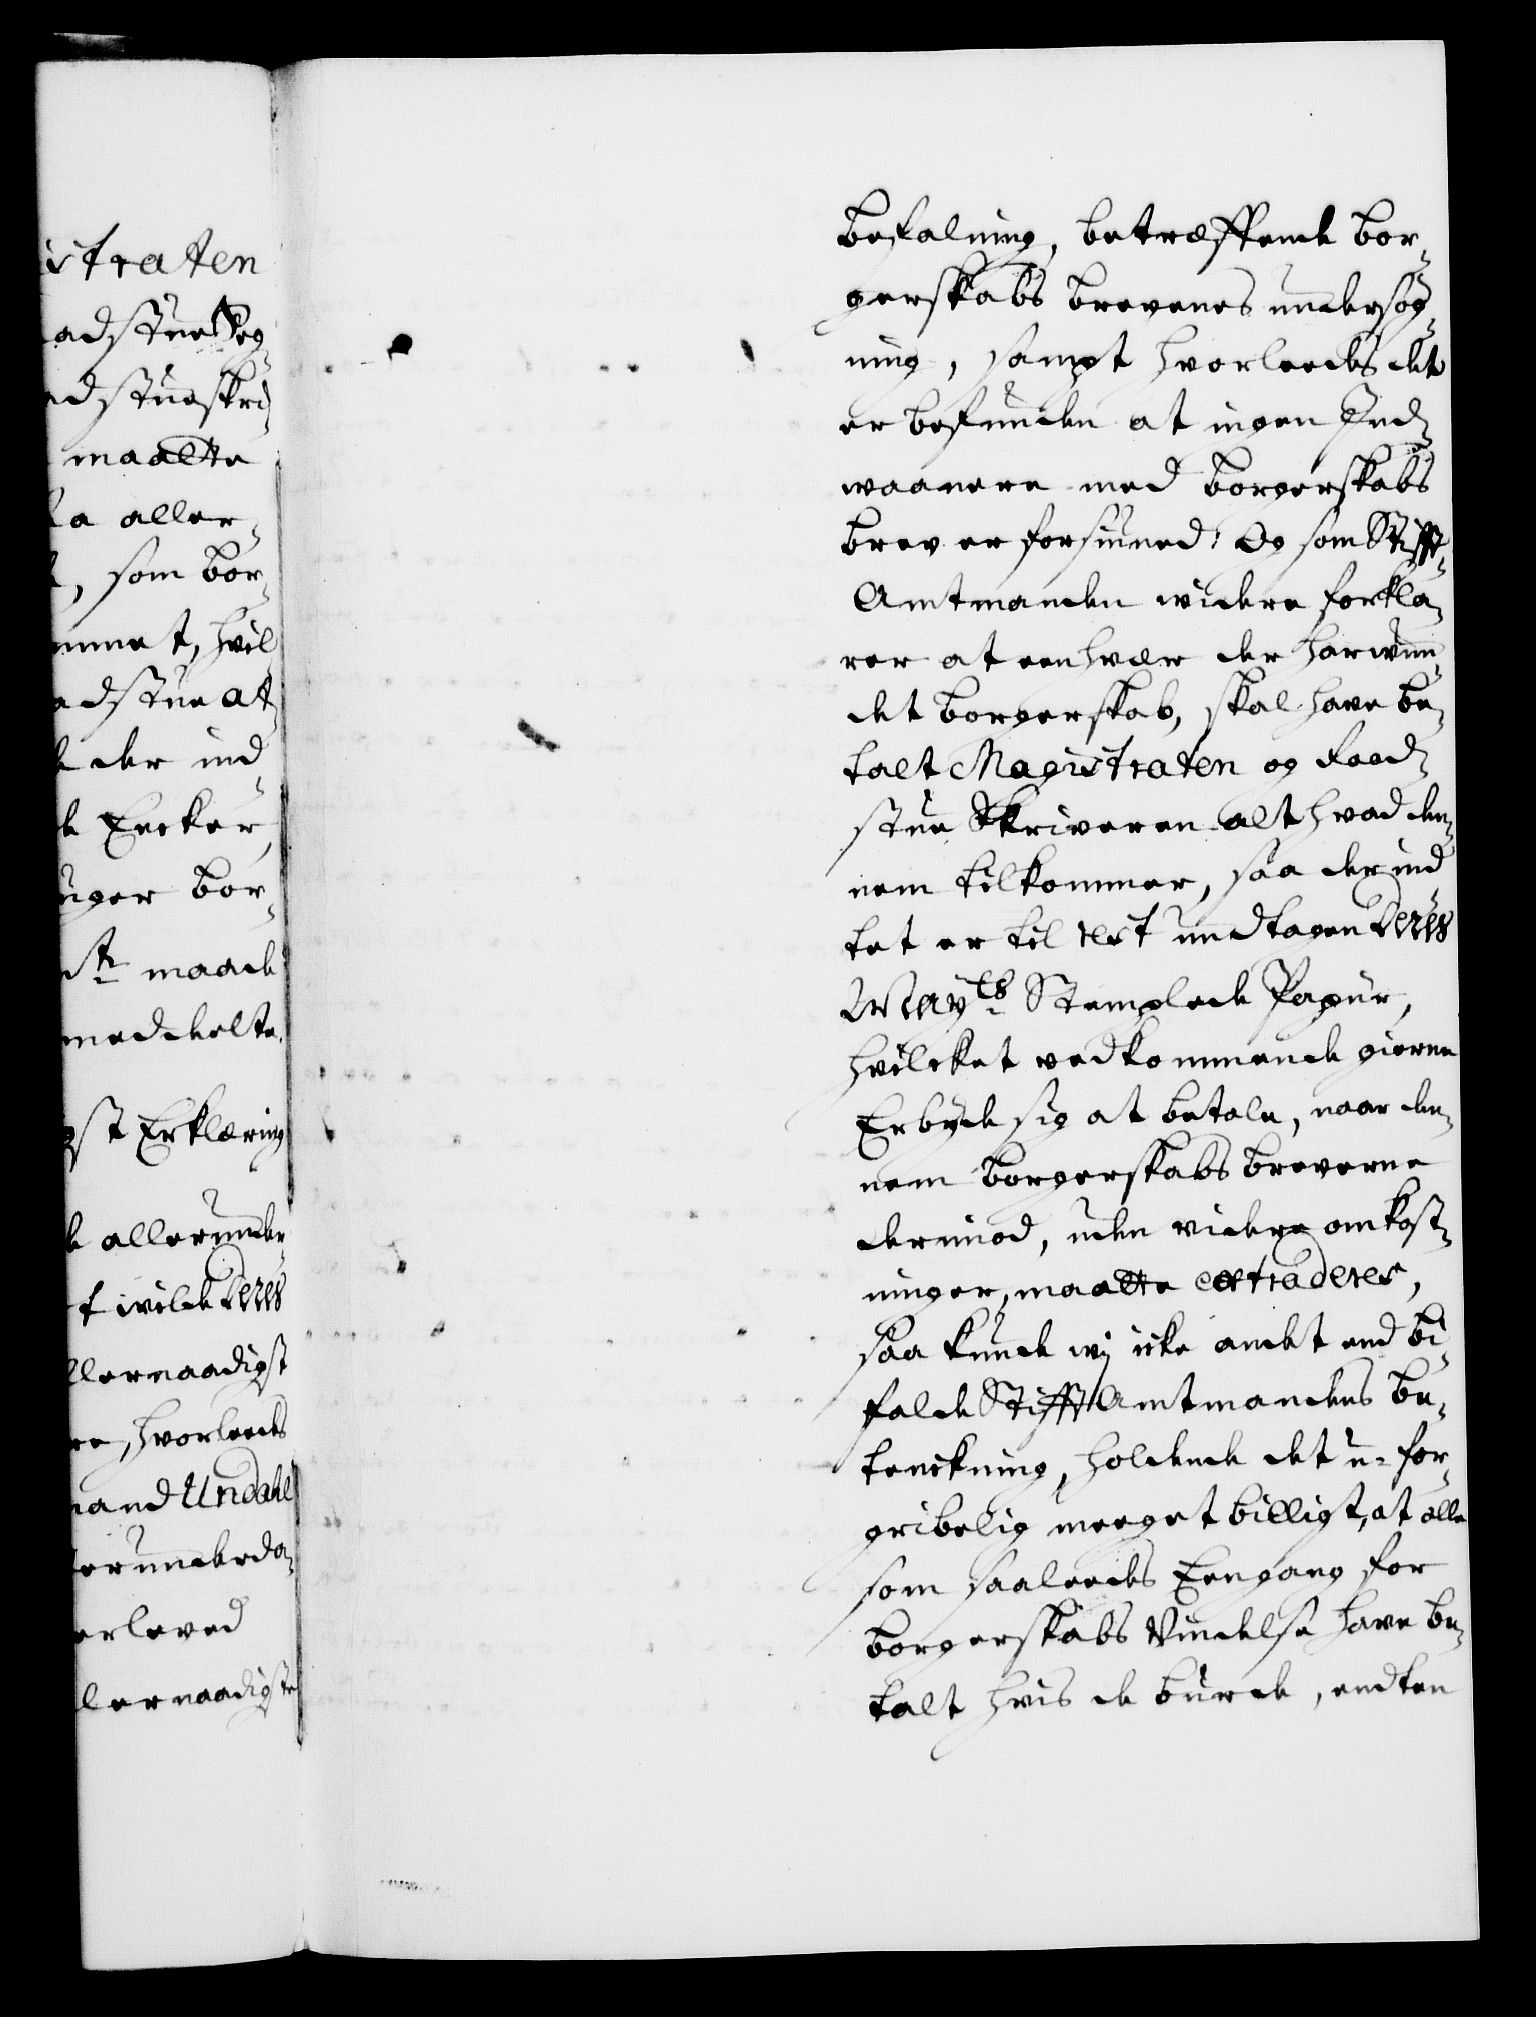 istraten
adstue Seg¬
adstueskri¬
maatte
da aller¬
, som bor¬
mmet, hvil¬
adstue at¬
der ind¬
Encker,
inger bor¬
maade
meddelte.
gst Erklæring
allerunder¬
t wilde Deres
llernaadigst
re, hvorleedes
mand Undahl
erunderda¬
erleved
lernaadigste
befalning, betræffende bor¬
gerskabs brevenes undersøg¬
ning, sampt hvorleedes det
er befunden at ingen Ind¬
waanere med borgerskabs
brev er forsiuned; Og som Stifft¬
Amtmanden widere forkla¬
rer at een hver der har wun¬
det borgerskab, skal have be¬
talt Magistraten og Raad¬
stue Skriveren alt hvad den¬
nem tilkommer, saa der ind¬
tet er til rest undtagen Deres
Mayts Stemplede Papiir,
hvilcket vedkommende gierne
Erbyde sig at betale, naar den¬
nem borgerskabs breverne
derimod, uden videre omkost¬
ninger, maatte extraderes,
saa kunde wij icke andet end bi¬
falde Stifft Amtmandens be¬
tenckning, holdende det u-for¬
gribelig meeget billigt, at alle
som saaleedes Eengang for
borgerskabs Vindelse have be¬
talt hvis de burde, endten